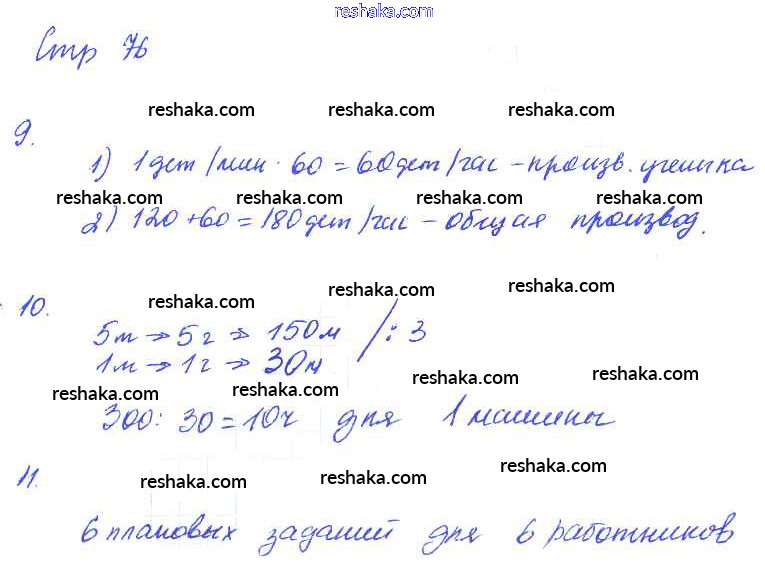 reshaka.com
Стр 76
reshaka.com reshaka.com reshaka.com
9.
1) 1 дет/мин · 60 = 60 дет/час - произв. ученика
reshaka.com reshaka.com reshaka.com
2) 120 + 60 = 180 дет/час - общая производ.
10.
reshaka.com reshaka.com reshaka.com
5м → 5ч → 150м /: 3
1м → 1ч → 30м
reshaka.com reshaka.com reshaka.com reshaka.com
300 : 30 = 10ч для 1 машины
11.
reshaka.com reshaka.com reshaka.com
6 плановых заданий для 6 работников